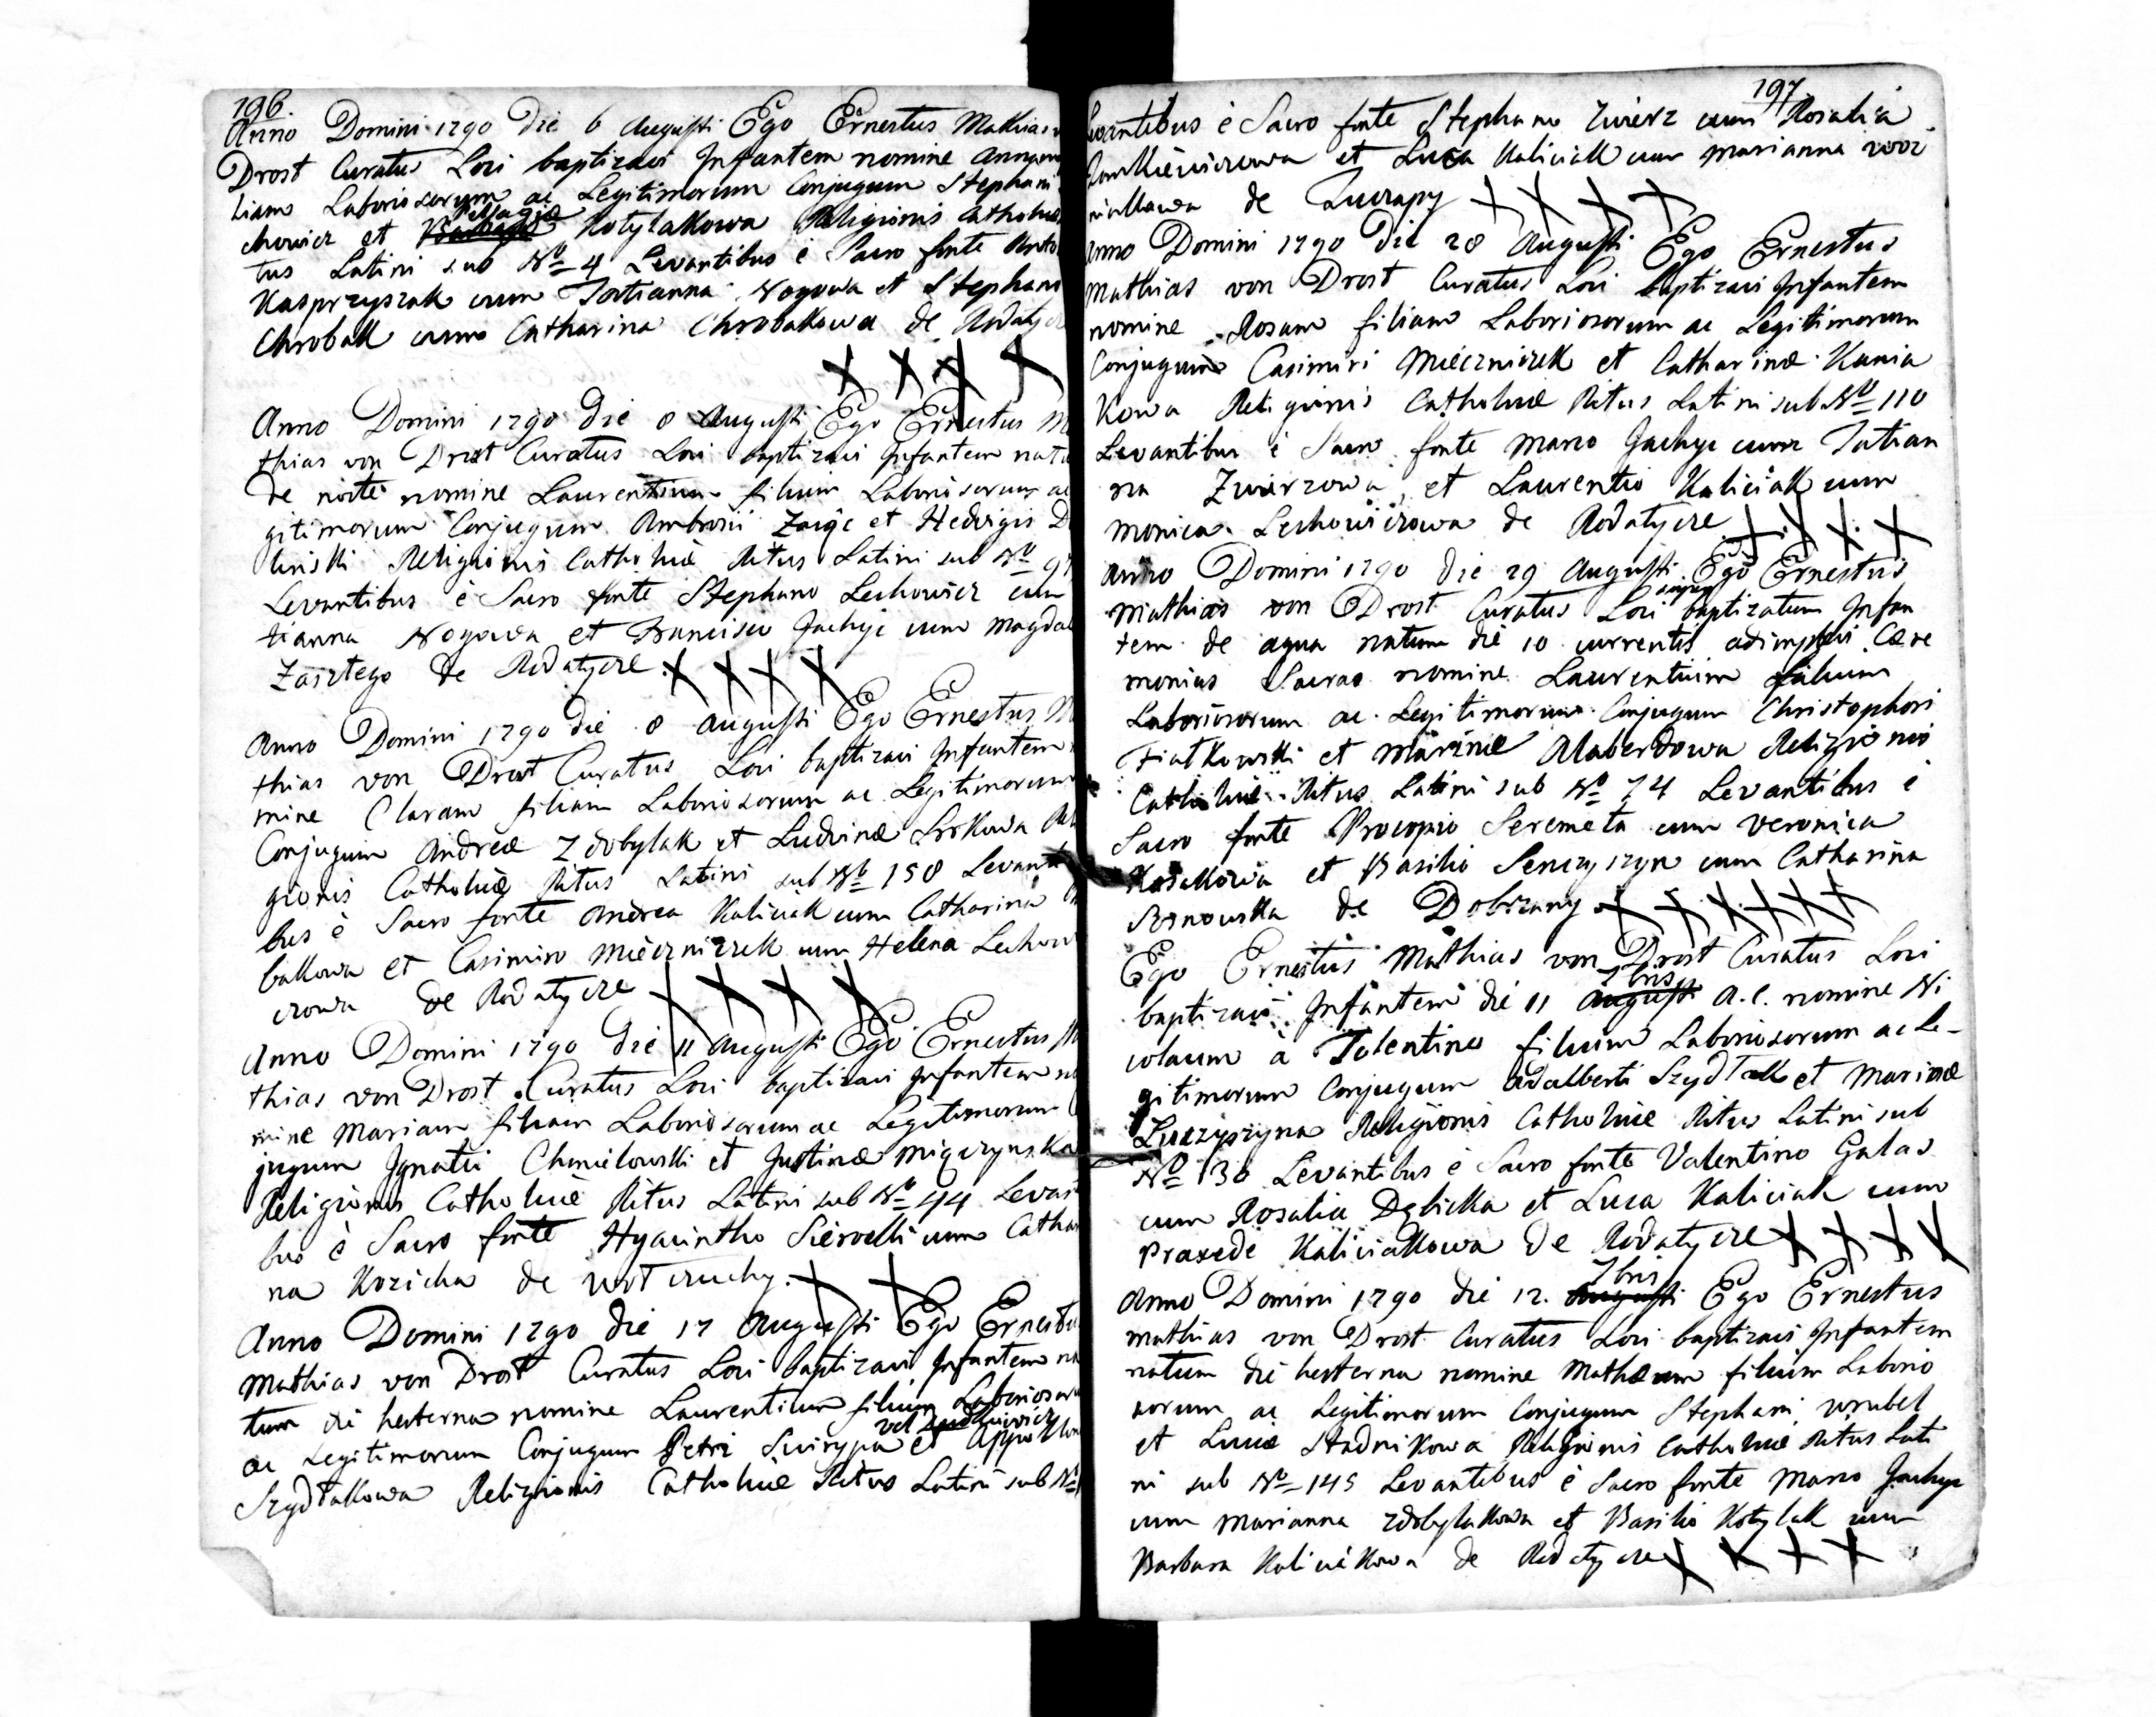 196.
Anno Domini 1790 die 6 Augusti Ego Ernestus Mathias v
Drost Curatus Loci baptizavi Infantem nomine Annam
liam Laboriosorum ac Legitimorum Conjugum Stephani
chowicz et Pellagiæ Kotylakowa Religionis Catholicæ
tus Latini sub No 4 Levantibus è Sacro fonte Anto
Kasprzyszak cum Tatianna Nogowa et Stephano
Chrobak cum Catharina Chrobakowa de Rodatycze
Anno Domini 1790 die 8 Augusti Ego Ernestus M
thias von Drost Curatus Loci baptizavi Infantem natu
de nocte nomine Laurentium filium Laboriosorum ac
gitimorum Conjugum Ambrosii Zając et Hedvigis D
linski Religionis Catholicæ Ritus Latini sub No 97
Levantibus è Sacro fonte Stephano Lechowicz cum
tianna Nogowa et Francisco Jachyc cum Magdal
de Rodatycze
Anno Domini 1790 die 8 Augusti Ego Ernestus M
thias von Drost Curatus Loci baptizavi Infantem
mine Claram filiam Laboriosorum ac Legitimorum
Conjugum Andreæ Zdobylak et Ludvinæ Srokowa Reli
gionis Catholicæ Ritus Latini sub No 158 Levanti
bus è Sacro fonte Andrea Kaliciak cum Catharina
bakowa et Casimiro Mieczniczek cum Helena Lechow
czowa de Rodatycze
Anno Domini 1790 die 11 Augusti Ego Ernestus M
thias von Drost Curatus Loci baptizavi Infantem no
mine Mariam filiam Laboriosorum ac Legitimorum
jugum Ignatii Chmielowski et Justinæ Migczynska
Religionis Catholicæ Ritus Latini sub No 44 Levanti
bus è Sacro fonte Hyacintho Sierocki cum Catha
na Kozicka de Wotczuchy.
Anno Domini 1790 die 17 Augusti Ego Ernestus
Mathias von Drost Curatus Loci baptizavi Infantem na
tum die hesterna nomine Laurentium filium Laboriosoru
ac Legitimorum Conjugum Petri Swirypa vel et Appollon
Szydłakowa Religionis Catholicæ Ritus Latini sub No
197
Levantibus è Sacro fonte Stephano Zwierz cum Rosalia
Jankiewiczowa et Luca Kaliciak cum Marianna Woz
niakowa de Zuczapy
Anno Domini 1790 die 28 Augusti Ego Ernestus
Mathias von Drost Curatus Loci baptizavi Infantem
nomine Rosam filiam Laboriosorum ac Legitimorum
Conjugum Casimiri Mieczniczek et Catharinæ Kunia
kowa Religionis Catholicæ Ritus Latini sub No 110
Levantibus è Sacro fonte Marco Jachyc cum Tatian
na Zwierzowa et Laurentio Kaliciak cum
Monica Lechowiczowa de Rodatycze
Anno Domini 1790 die 29 Augusti Ego Ernestus
Mathias von Drost Curatus Loci baptizatum Infan
tem de aqua natum die 10 currentis adimplevi Cære
monias Sacras nomine Laurentium filium
Laboriosorum ac Legitimorum Conjugum Christophori
Fiatkowski et Marinæ Alaberdowa Religionis
Catholicæ Ritus Latini sub No 74 Levantibus è
Sacro fonte Procopio Seremeta cum Veronica
Kozakowa et Basilio Senczyszyn cum Catharina
Sosnowska de Dobrzany
Ego Ernestus Mathias von Drost Curatus Loci
baptizavi Infantem die 11 Augusti 7bris a. c. nomine Ni
colaum à Tolentino filium Laboriosorum ac Le-
gitimorum Conjugum Adalberti Szydłak et Marinæ
Luczyszyna Religionis Catholicæ Ritus Latini sub
No 136 Levantibus è Sacro fonte Valentino Galas
cum Rosalia Dębicka et Luca Kaliciak cum
Praxede Kaliciakowa de Rodatycze
Anno Domini 1790 die 12. Augusti 7bris Ego Ernestus
Mathias von Drost Curatus Loci baptizavi Infantem
natum die hesterna nomine Mathæum filium Laborio
sorum ac Legitimorum Conjugum Stephani Wrubel
et Luciæ Stadnikowa Religionis Catholicæ Ritus Lati
ni sub No 145 Levantibus è Sacro fonte Marco Jachyc
cum Marianna Zdobylakowa et Basilio Kotylak cum
Barbara Kaliciakowa de Rodatycze